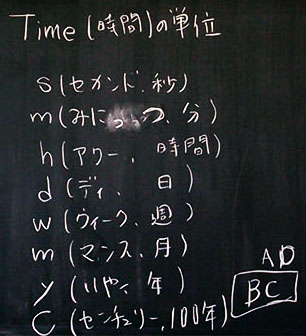 Time (時間)の単位
s (セカンド、秒)
m (みにっっつ、分)
h (アワー、時間)
d (ディ、日)
w (ウィーク、週)
m (マンス、月)
y (いや、年)
C (センチュリー、100年)
AD
BC